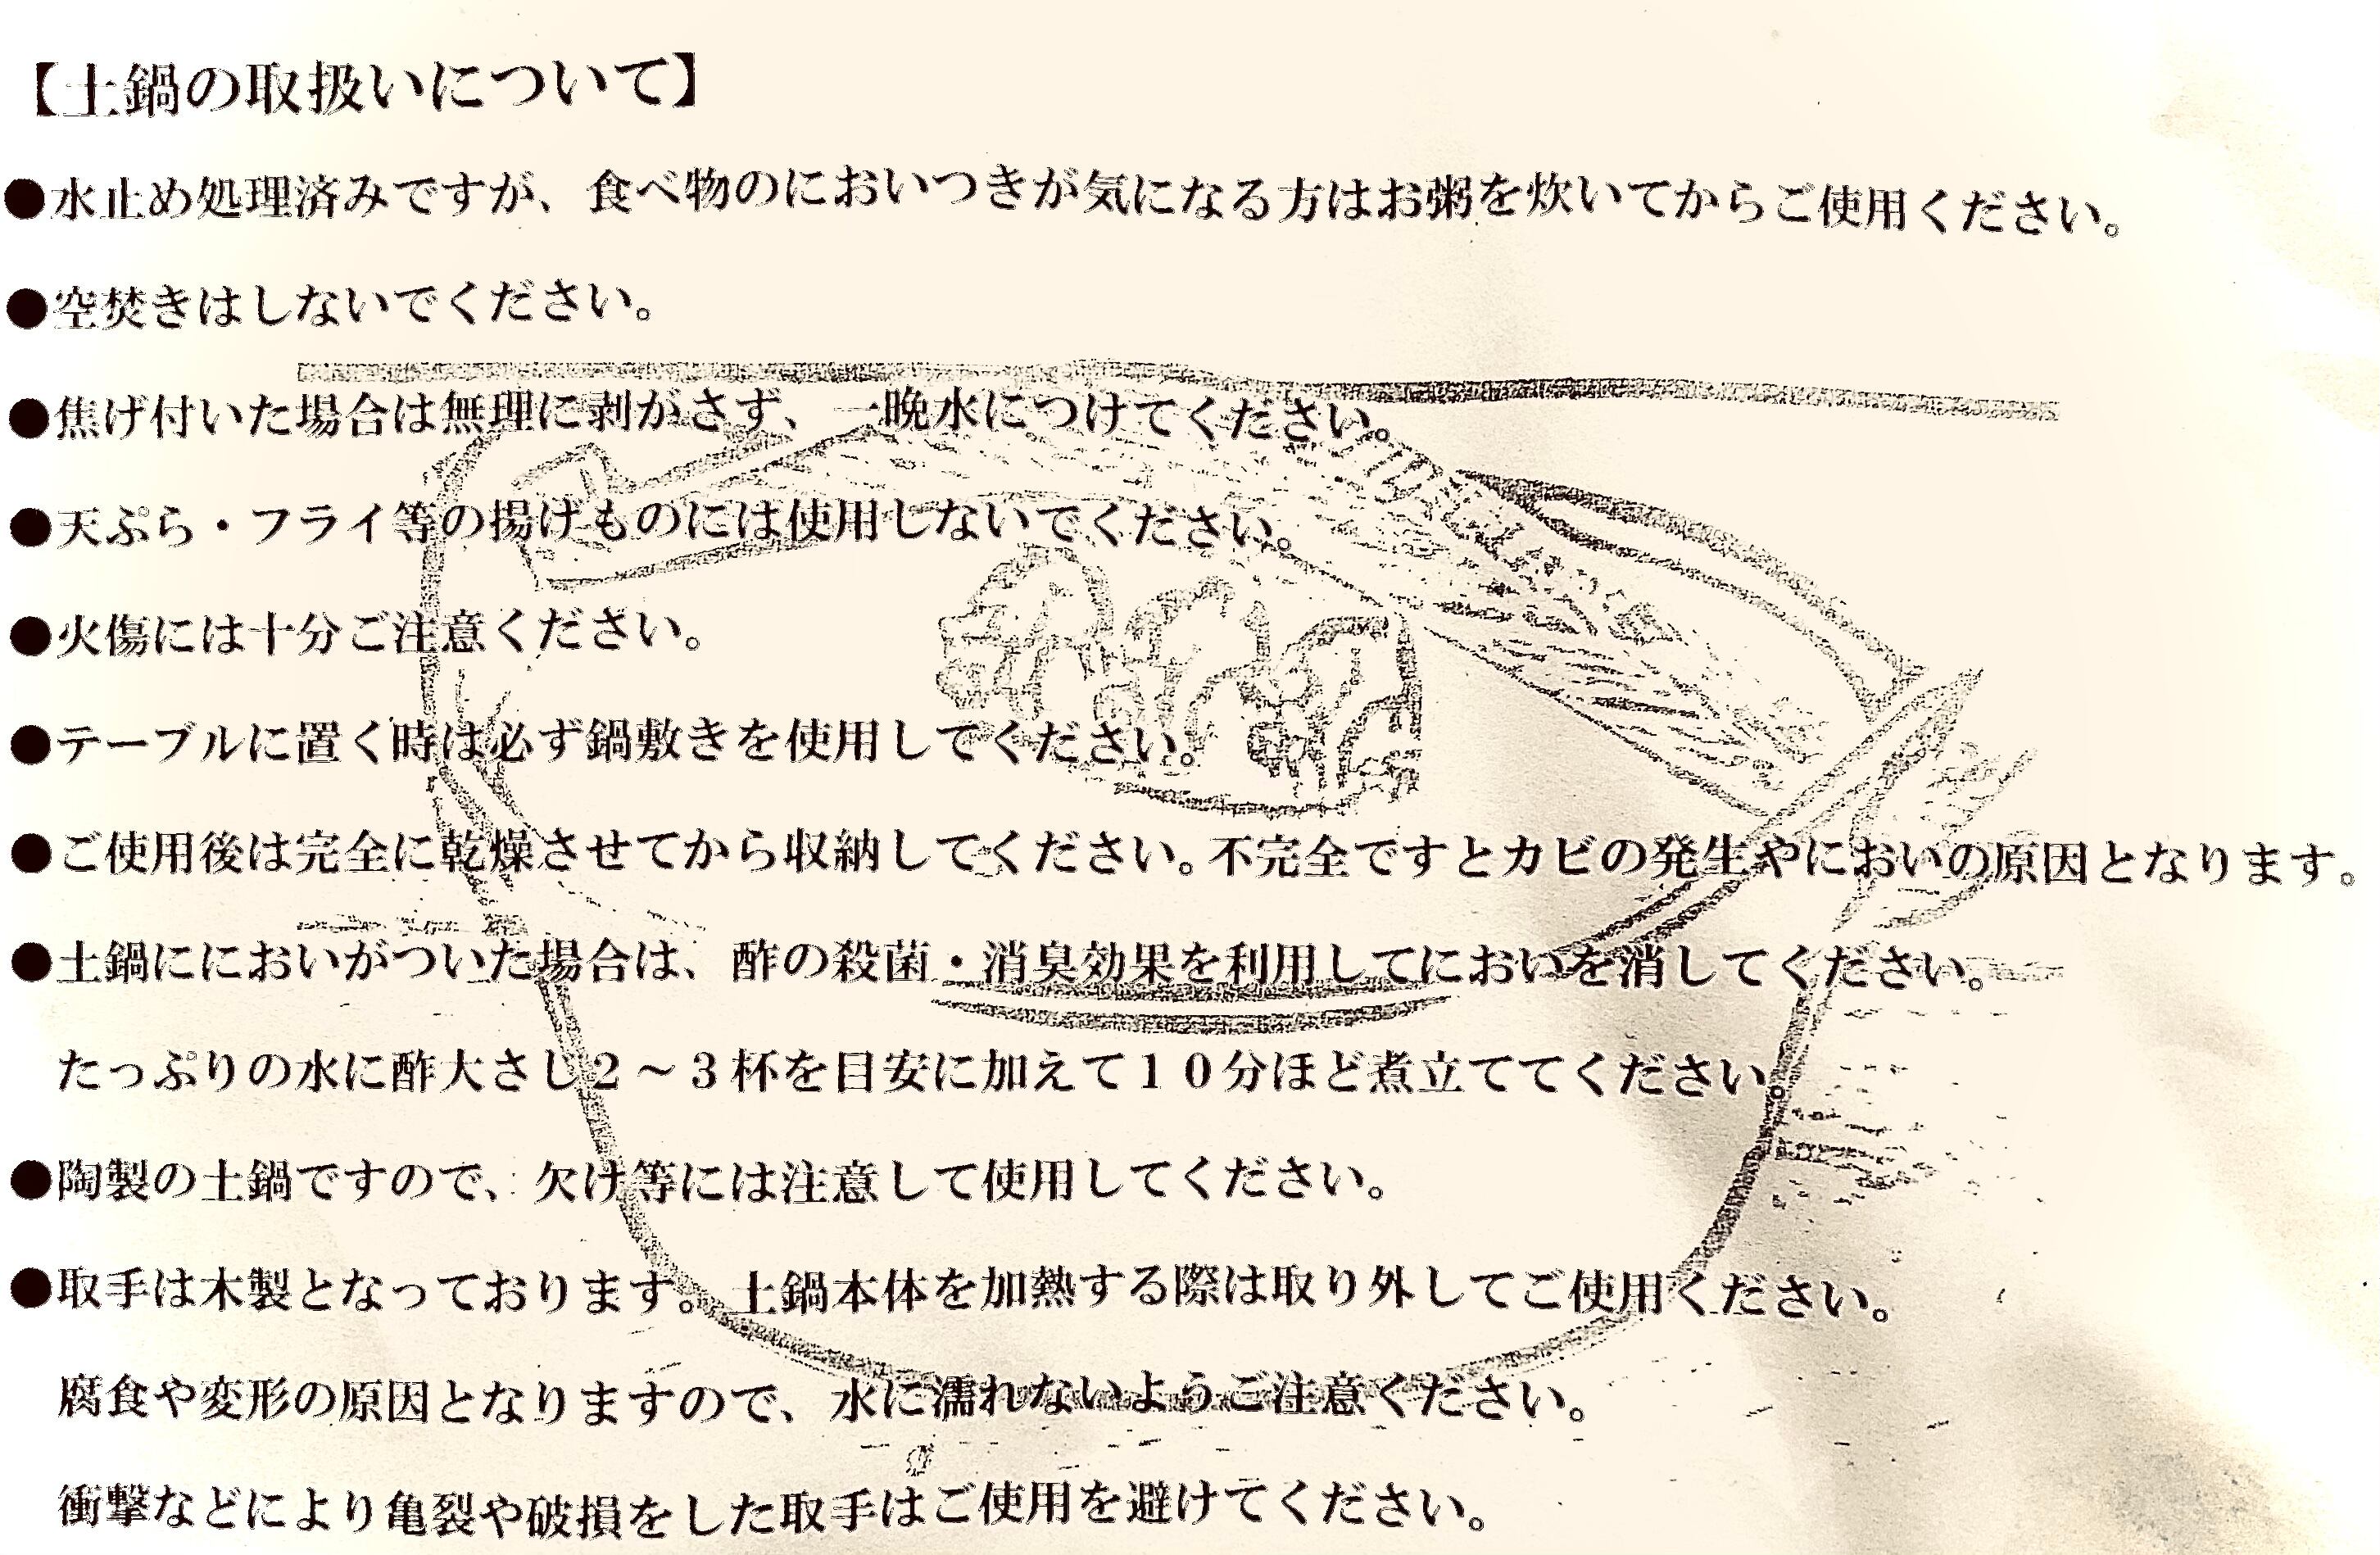 【土鍋の取扱いについて】
●水止め処理済みですが、食べ物のにおいつきが気になる方はお粥を炊いてからご使用ください。
●空焚きはしないでください。
●焦げ付いた場合は無理に剥がさず、一晩水につけてください。
●天ぷら・フライ等の揚げものには使用しないでください。
●火傷には十分ご注意ください。
●テーブルに置く時は必ず鍋敷きを使用してください。
●ご使用後は完全に乾燥させてから収納してください。不完全ですとカビの発生やにおいの原因となります。
●土鍋ににおいがついた場合は、酢の殺菌・消臭効果を利用してにおいを消してください。
たっぷりの水に酢大さじ２～３杯を目安に加えて１０分ほど煮立ててください。
●陶製の土鍋ですので、欠け等には注意して使用してください。
●取手は木製となっております。土鍋本体を加熱する際は取り外してご使用ください。
腐食や変形の原因となりますので、水に濡れないようご注意ください。
衝撃などにより亀裂や破損をした取手はご使用を避けてください。